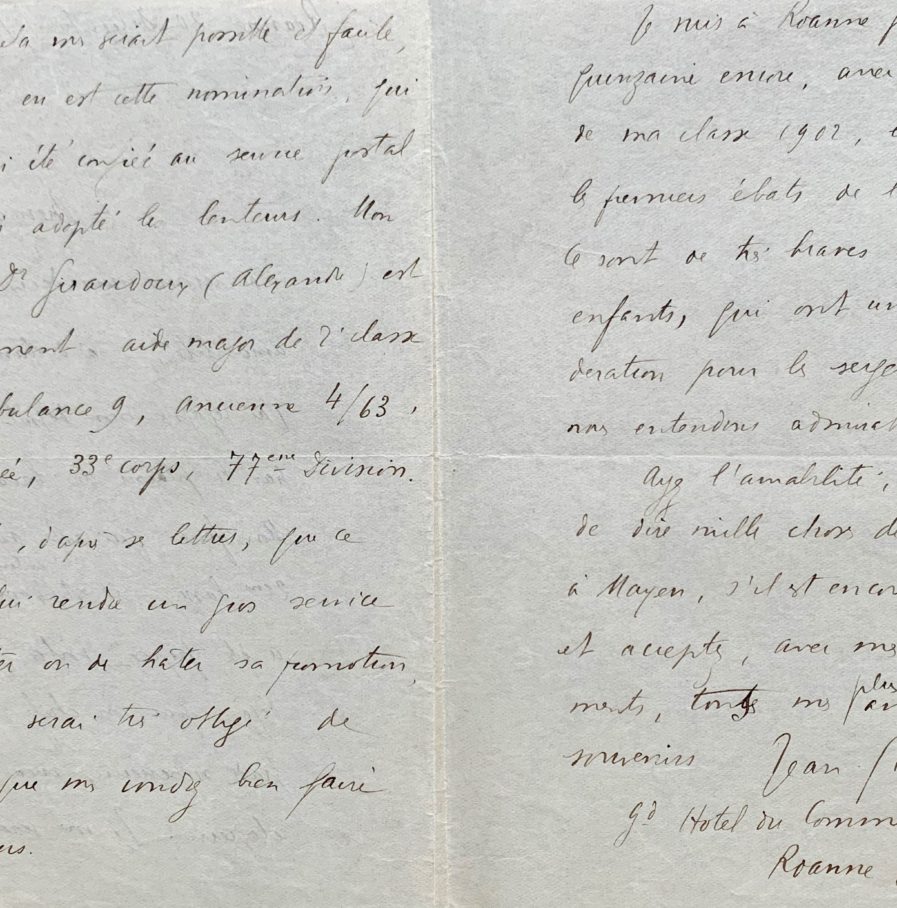 me serait possible et facile,
en est cette nomination, qui
été confiée au service postal
adopté les lenteurs. Mon
Dr Giraudoux (Alexandre) est
aide major de 2e classe
9, ancienne 4/63,
33e corps, 77ème Division.
, d'après ses lettres, que ce
lui rendre un gros service
ou de hâter sa promotion,
serai très obligé de
que vous voudrez bien faire
Je suis à Roanne
quinzaine encore, avec
de ma classe 1902,
les premiers ébats de
Ce sont de très braves
enfants, qui ont un
pour les
nous entendons
Ayez l'amabilité,
de dire mille choses
à Mayen, s'il est encore
et acceptez, avec mes
ments, tous mes plus
souvenirs Jean
Gd Hotel du
Roanne